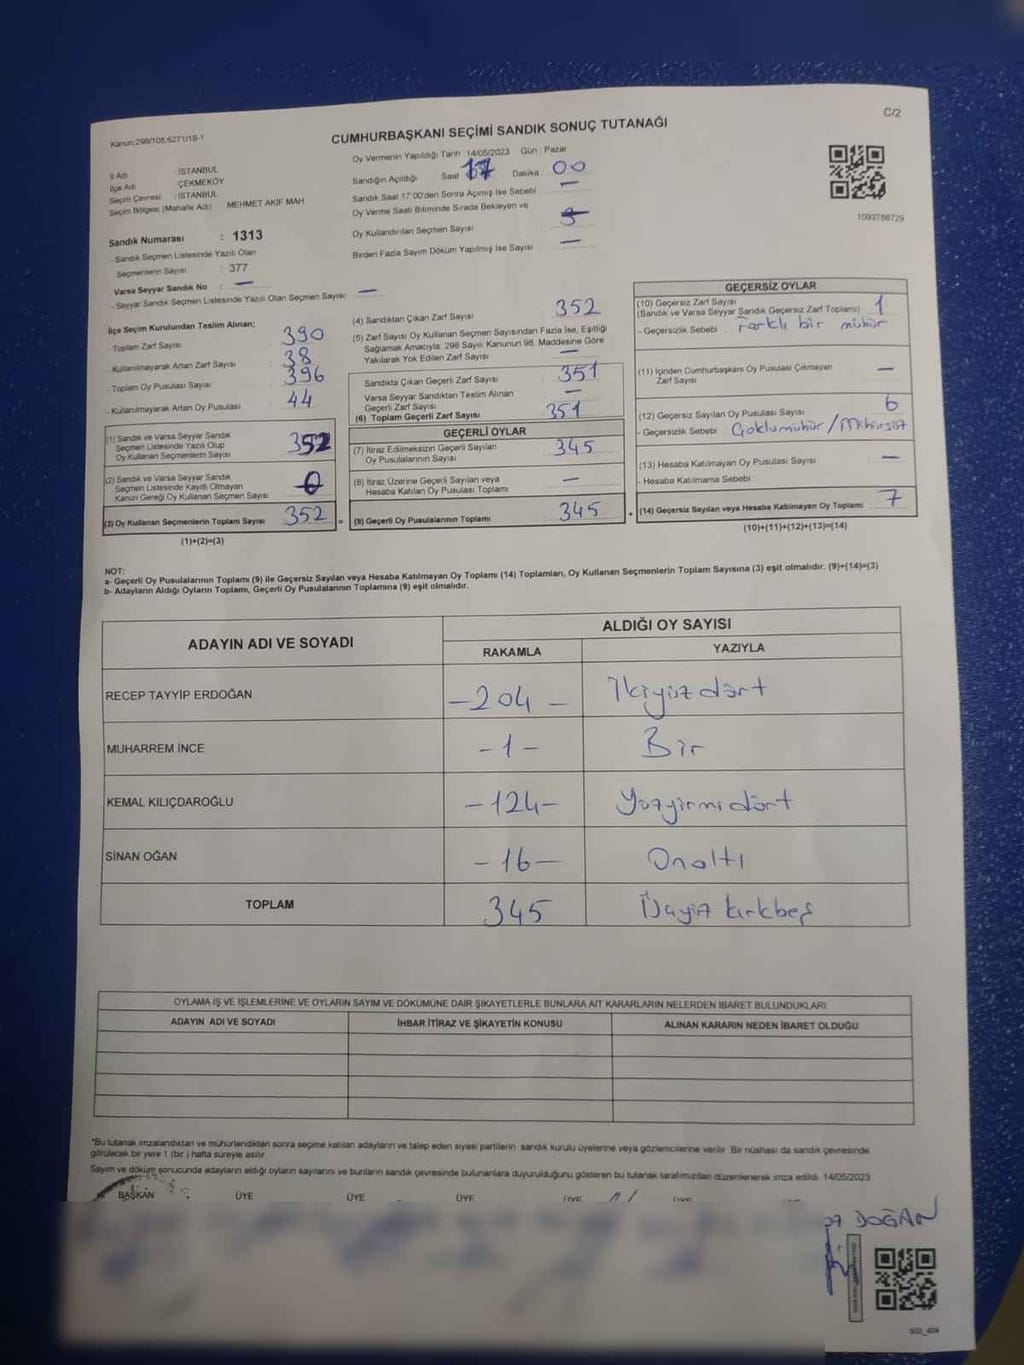 Kanun:298/105,6271/19-1
C/2
CUMHURBAŞKANI SEÇİMİ SANDIK SONUÇ TUTANAĞI
İl Adı : İSTANBUL
İlçe Adı : ÇEKMEKÖY
Seçim Çevresi : İSTANBUL
Seçim Bölgesi (Mahalle Adı) MEHMET AKİF MAH.
Sandık Numarası : 1313
Sandık Seçmen Listesinde Yazılı Olan
Seçmenlerin Sayısı : 377
Varsa Seyyar Sandık No : —
- Seyyar Sandık Seçmen Listesinde Yazılı Olan Seçmen Sayısı: —
Oy Vermenin Yapıldığı Tarih : 14/05/2023 Gün : Pazar
Sandığın Açıldığı Saat 17 Dakika 00
Sandık Saat 17:00'den Sonra Açılmış İse Sebebi —
Oy Verme Saati Bitiminde Sırada Bekleyen ve
Oy Kullandırılan Seçmen Sayısı
Birden Fazla Sayım Döküm Yapılmış İse Sayısı —
1093788729
İlçe Seçim Kurulundan Teslim Alınan;
- Toplam Zarf Sayısı 390
- Kullanılmayarak Artan Zarf Sayısı 38
- Toplam Oy Pusulası Sayısı 396
- Kullanılmayarak Artan Oy Pusulası 44
(1) Sandık ve Varsa Seyyar Sandık
Seçmen Listesinde Yazılı Olup
Oy Kullanan Seçmenlerin Sayısı 352
(2) Sandık ve Varsa Seyyar Sandık
Seçmen Listesinde Kayıtlı Olmayan
Kanun Gereği Oy Kullanan Seçmen Sayısı 0
(3) Oy Kullanan Seçmenlerin Toplam Sayısı 352 =
(1)+(2)=(3)
(4) Sandıktan Çıkan Zarf Sayısı 352
(5) Zarf Sayısı Oy Kullanan Seçmen Sayısından Fazla İse, Eşitliği
Sağlamak Amacıyla, 298 Sayılı Kanunun 98. Maddesine Göre
Yakılarak Yok Edilen Zarf Sayısı —
Sandıkta Çıkan Geçerli Zarf Sayısı 351
Varsa Seyyar Sandıktan Teslim Alınan
Geçerli Zarf Sayısı —
(6) Toplam Geçerli Zarf Sayısı 351
GEÇERLİ OYLAR
(7) İtiraz Edilmeksizin Geçerli Sayılan
Oy Pusulalarının Sayısı 345
(8) İtiraz Üzerine Geçerli Sayılan veya
Hesaba Katılan Oy Pusulası Toplamı —
(9) Geçerli Oy Pusulalarının Toplamı 345 +
GEÇERSİZ OYLAR
(10) Geçersiz Zarf Sayısı
(Sandık ve Varsa Seyyar Sandık Geçersiz Zarf Toplamı) 1
- Geçersizlik Sebebi : Farklı bir mühür
(11) İçinden Cumhurbaşkanı Oy Pusulası Çıkmayan
Zarf Sayısı —
(12) Geçersiz Sayılan Oy Pusulası Sayısı 6
- Geçersizlik Sebebi :
(13) Hesaba Katılmayan Oy Pusulası Sayısı —
- Hesaba Katılmama Sebebi :
(14) Geçersiz Sayılan veya Hesaba Katılmayan Oy Toplamı 7
(10)+(11)+(12)+(13)=(14)
NOT:
a- Geçerli Oy Pusulalarının Toplamı (9) ile Geçersiz Sayılan veya Hesaba Katılmayan Oy Toplamı (14) Toplamları, Oy Kullanan Seçmenlerin Toplam Sayısına (3) eşit olmalıdır. (9)+(14)=(3)
b- Adayların Aldığı Oyların Toplamı, Geçerli Oy Pusulalarının Toplamına (9) eşit olmalıdır.
ADAYIN ADI VE SOYADI
ALDIĞI OY SAYISI
RAKAMLA YAZIYLA
RECEP TAYYİP ERDOĞAN -204- İkiyüzdört
MUHARREM İNCE -1- Bir
KEMAL KILIÇDAROĞLU -124- Yüzyirmidört
SİNAN OĞAN -16- Onaltı
TOPLAM 345 Üçyüz kırkbeş
OYLAMA İŞ VE İŞLEMLERİNE VE OYLARIN SAYIM VE DÖKÜMÜNE DAİR ŞİKAYETLERLE BUNLARA AİT KARARLARIN NELERDEN İBARET BULUNDUKLARI
ADAYIN ADI VE SOYADI İHBAR İTİRAZ VE ŞİKAYETİN KONUSU ALINAN KARARIN NEDEN İBARET OLDUĞU
"Bu tutanak imzalandıktan ve mühürlendikten sonra seçime katılan adayların ve talep eden siyasi partilerin sandık kurulu üyelerine veya gözlemcilerine verilir. Bir nüshası da sandık çevresinde
görülecek bir yere 1 (bir ) hafta süreyle asılır.
Sayım ve döküm sonucunda adayların aldığı oyların sayılarını ve bunların sandık çevresinde bulunanlara duyurulduğunu gösteren bu tutanak tarafımızdan düzenlenerek imza edildi. 14/05/2023
BAŞKAN ÜYE ÜYE ÜYE ÜYE ÜYE
DOĞAN